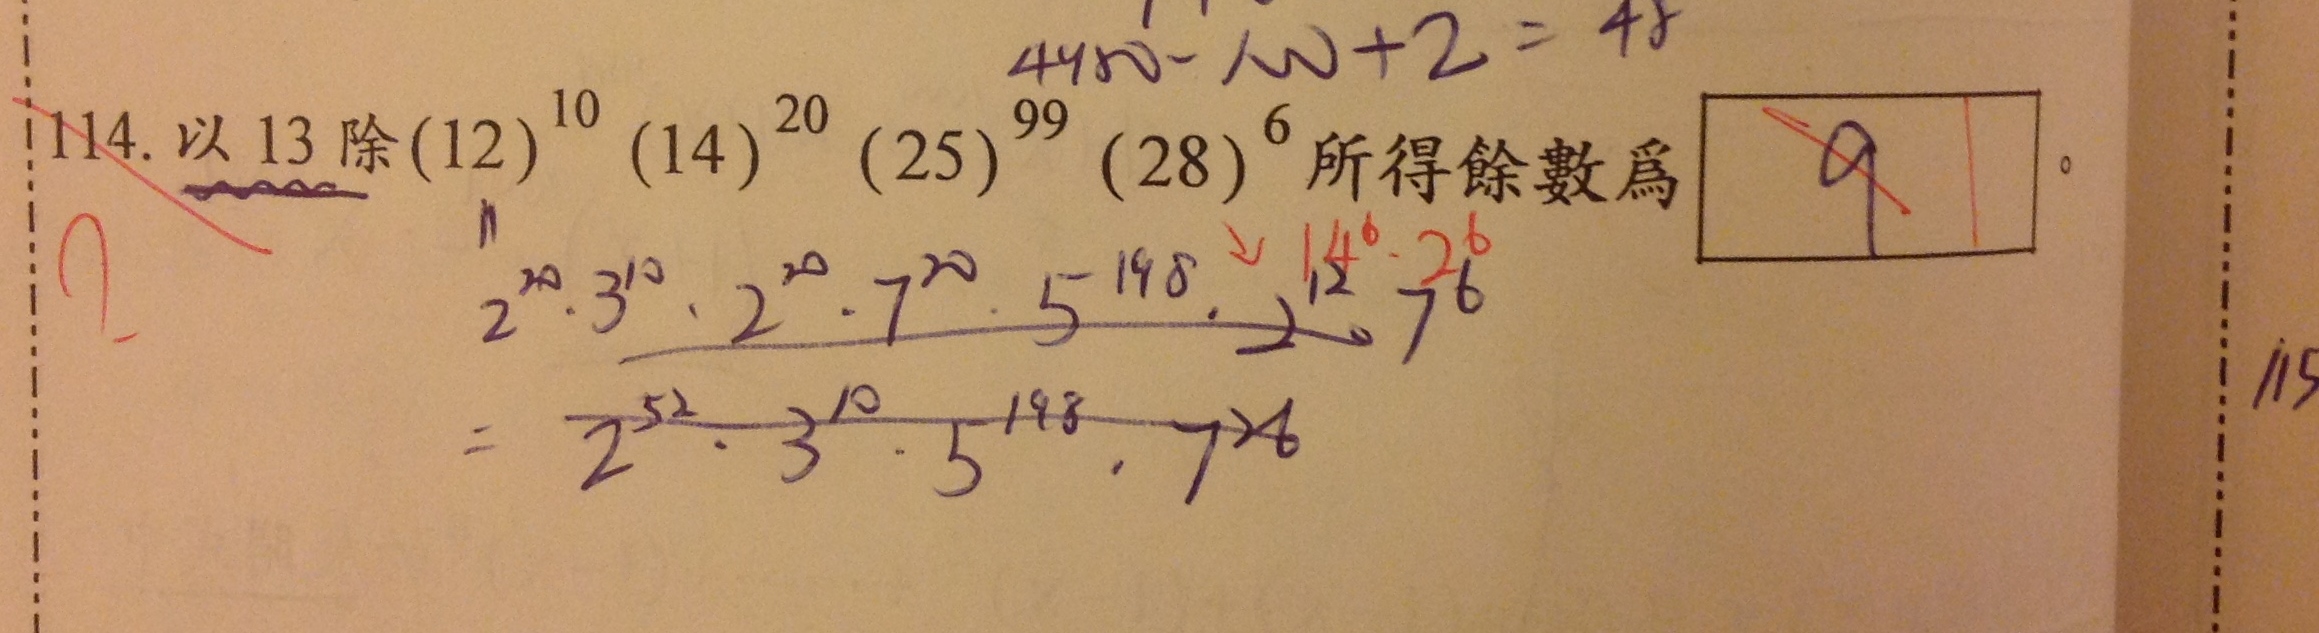 4450-100+2=48
114. 以 13 除(12)^10 (14)^20 (25)^99 (28)^6 所得餘數爲 9 1 。
?
↘ 14^6 · 2^6
2^20 · 3^10 · 2^20 · 7^20 · 5^198 · 2^12 7^6
= 2^52 · 3^10 · 5^198 · 7^26
115